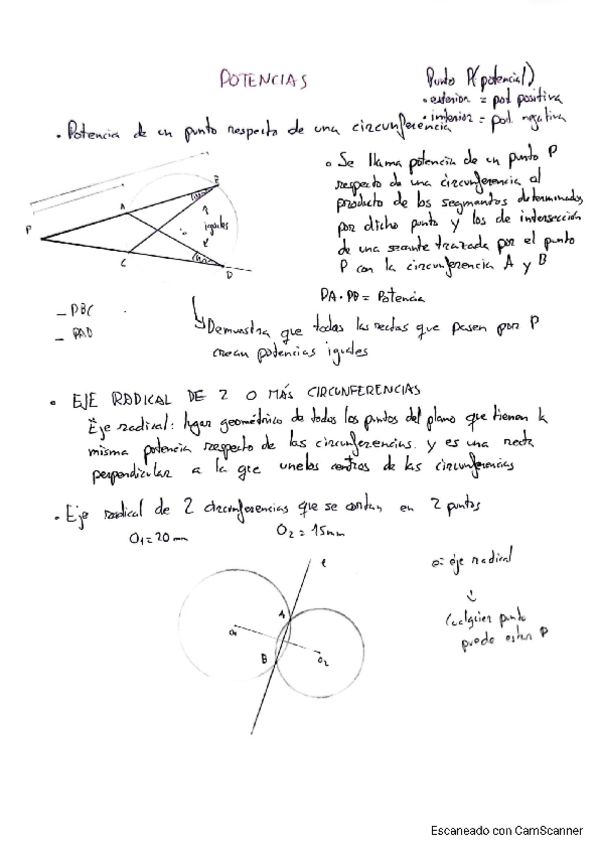 POTENCIAS
Punto P(potencial)
• exterior = pot positiva
• interior = pot negativa
• Potencia de un punto respecto de una circunferencia
• Se llama potencia de un punto P
respecto de una circunferencia al
producto de los segmentos determinados
por dicho punto y los de intersección
de una secante trazada por el punto
P con la circunferencia A y B
PA · PB = Potencia
P
A
B
C
D
iguales
- PBC
- PAD
Demuestra que todas las rectas que pasen por P
crean potencias iguales
• EJE RADICAL DE 2 O MÁS CIRCUNFERENCIAS
Eje radical: lugar geométrico de todos los puntos del plano que tienen la
misma potencia respecto de las circunferencias. y es una recta
perpendicular a la que une los centros de las circunferencias
• Eje radical de 2 circunferencias que se cortan en 2 puntos
O1 = 20 mm
O2 = 15mm
e
A
O1
B
O2
e = eje radical
Cualquier punto
puede ester P
Escaneado con CamScanner